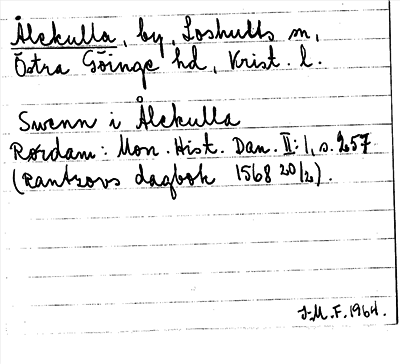 Ålekulla, by, Loshults sn,
Östra Göinge hd, Krist. l.
Swenn i Ålekulla
Rørdam: Mon. Hist. Dan. II:1, s. 257
(Rantzovs dagbok 1568 20/2).
J.M.F. 1964.